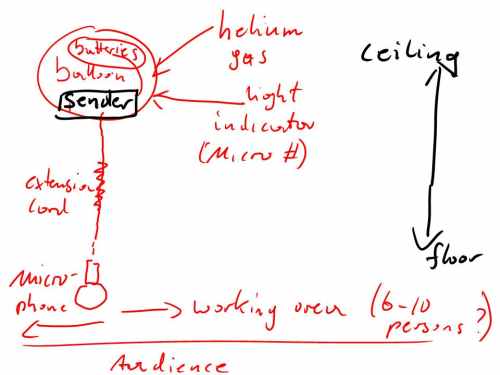 helium
gas
ceiling
batteries
balloon
Sender
light
indicator
(Micro #)
extension
cord
floor
Micro-
phone
working area (6-10
persons?)
Audience